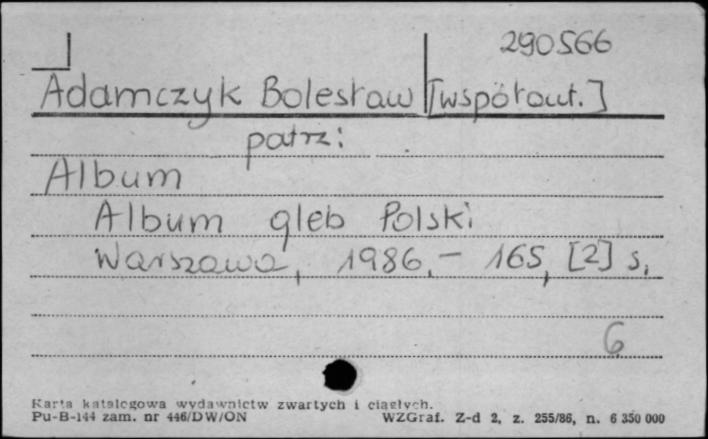 290566
Adamczyk Bolesław [współaut.]
patrz:
Album
Album gleb Polski
Warszawa, 1986.- 165, [2] s.
6
Karta katalogowa wydawnictw zwartych i ciągłych.
Pu-B-144 zam. nr 446/DW/ON WZGraf. Z-d 2, z. 255/86, n. 6 350 000